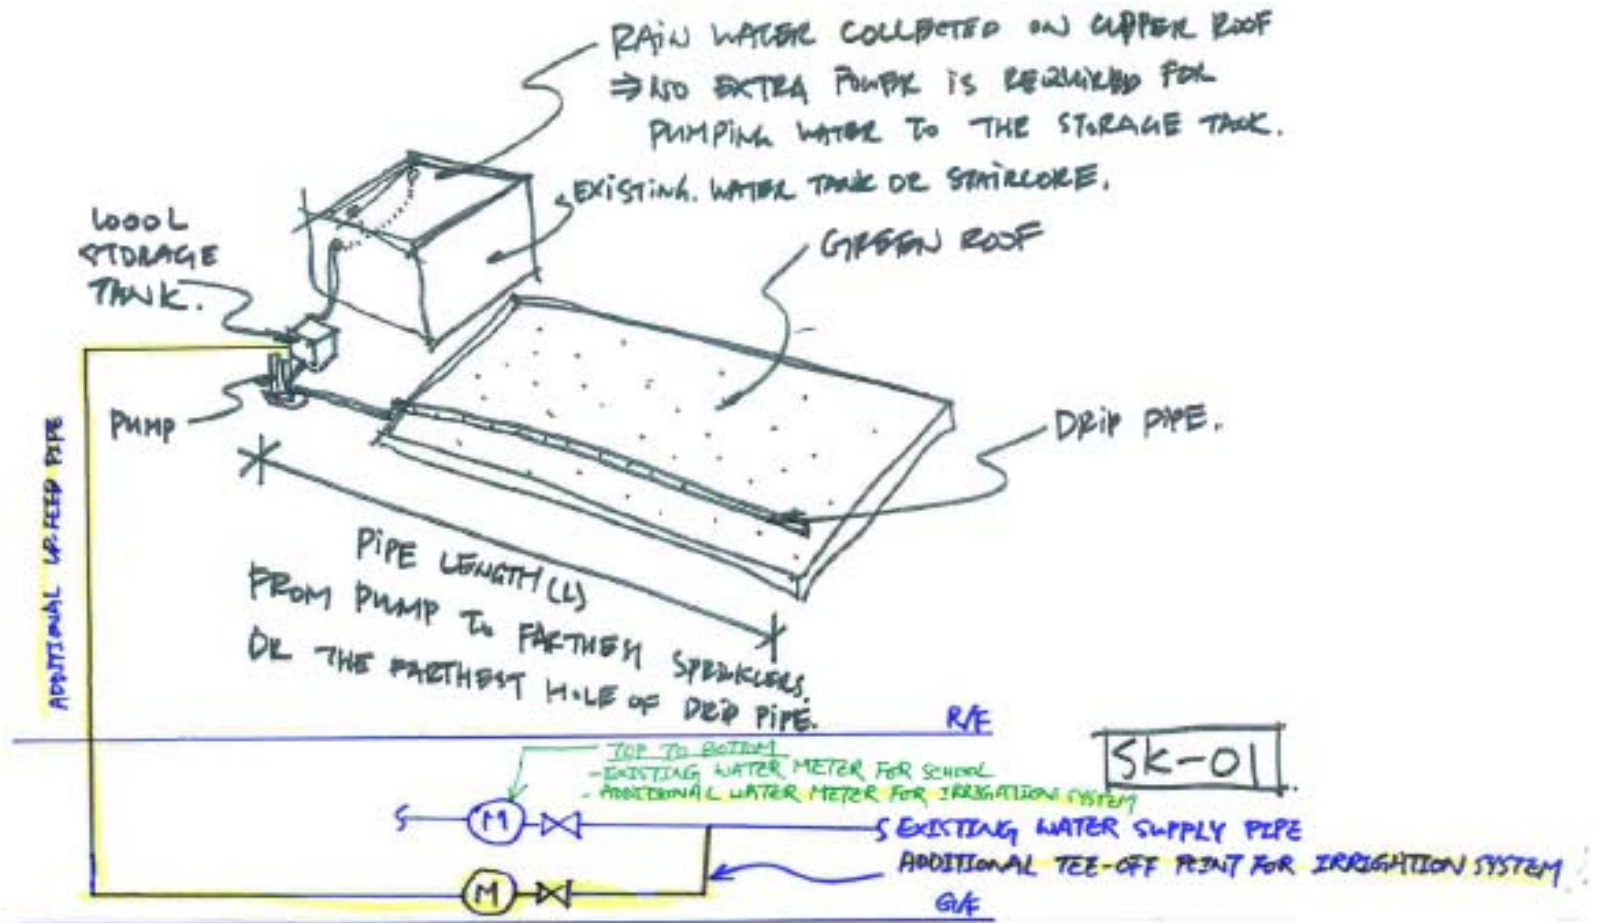 RAIN WATER COLLECTED ON UPPER ROOF
⇒ NO EXTRA POWER IS REQUIRED FOR
PUMPING WATER TO THE STORAGE TANK.
EXISTING. WATER TANK OR STAIRCORE.
1000L
STORAGE
TANK.
GREEN ROOF
PUMP
DRIP PIPE.
ADDITIONAL UP-FEED PIPE
PIPE LENGTH (L)
FROM PUMP TO FARTHEST SPRINKLERS.
OR THE FARTHEST HOLE OF DRIP PIPE.
R/F
SK-01
TOP TO BOTTOM
-EXISTING WATER METER FOR SCHOOL
- ADDITIONAL WATER METER FOR IRRIGATION SYSTEM
M
EXISTING WATER SUPPLY PIPE
ADDITIONAL TEE-OFF POINT FOR IRRIGATION SYSTEM
M
G/F